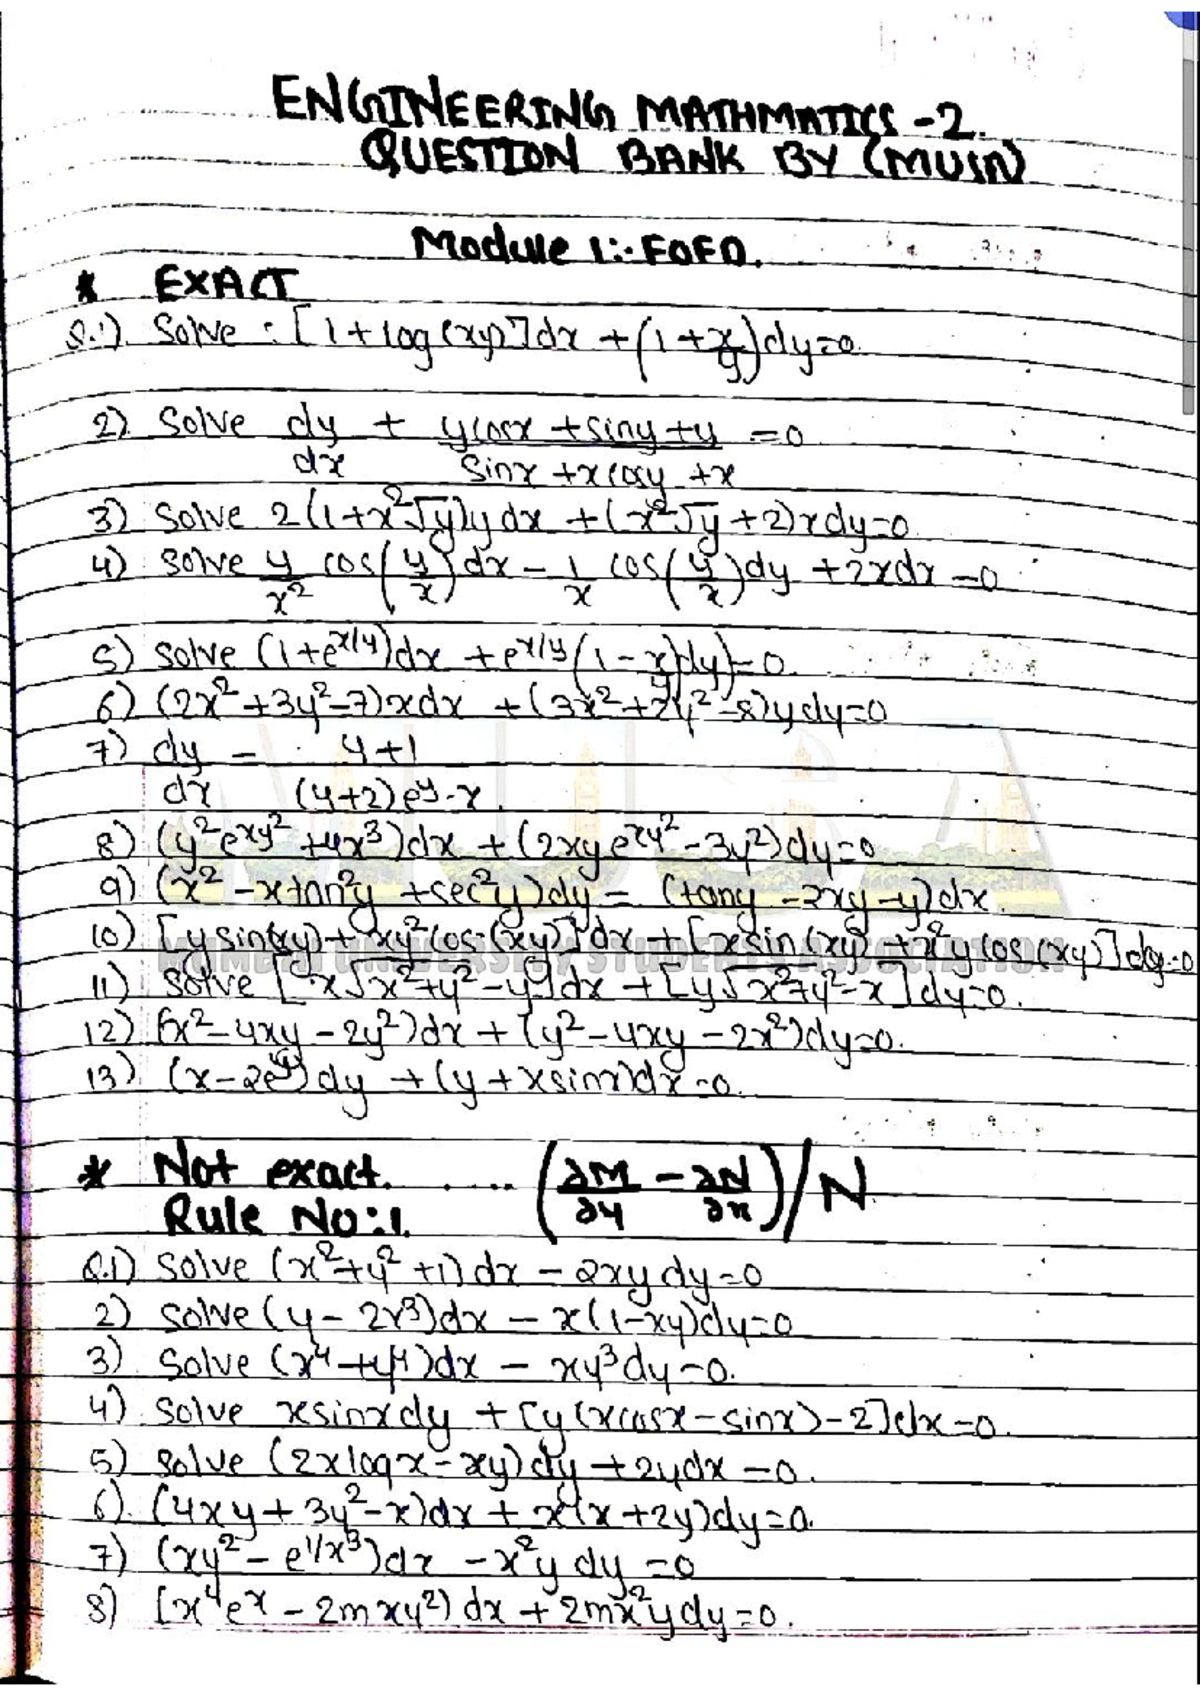 ENGINEERING MATHMATICS -2.
QUESTION BANK BY (MUSA)
Module 1:- FOFD.
* EXACT
Q.1). Solve : [1+log(xy)]dx + (1+x/y)dy=0.
2). Solve dy/dx + (ycosx +siny+y)/(sinx +xcosy +x) =0
3) Solve 2(1+x²√y)ydx +(x²√y+2)xdy=0.
4) Solve y/x² cos(y/x)dx - 1/x cos(y/x)dy +2xdx =0
5) Solve (1+e^(x/y))dx +e^(x/y)(1-x/y)dy=0.
6) (2x²+3y²-7)xdx +(3x²+2y²-8)ydy=0
7) dy/dx = (y+1)/((y+2)e^y-x).
8) (y²e^(xy²)+4x³)dx +(2xye^(xy²)-3y²)dy=0
9) (x²-xtan²y +sec²y)dy = (tany -2xy-y)dx.
10) [ysin(xy)+xy²cos(xy)]dx +[xsin(xy)+x²ycos(xy)]dy=0
11) Solve [x√x²+y² -y]dx +[y√x²+y²-x]dy=0.
12) (x²-4xy-2y²)dx +(y²-4xy-2x²)dy=0.
13) (x-2e^y)dy +(y+xsinx)dx=0.
* Not exact. ..... (∂M/∂y - ∂N/∂x)/N
Rule No:1.
Q.1) Solve (x²+y²+1)dx - 2xydy=0
2) Solve (y-2x³)dx - x(1-xy)dy=0
3) Solve (x⁴+y⁴)dx - xy³dy=0.
4) Solve xsinxdy +[y(xcosx-sinx)-2]dx=0.
5) Solve (2xlogx-xy)dy +2ydx =0.
6). (4xy+3y²-x)dx + x(x+2y)dy=0.
7) (xy²-e^(1/x³))dx -x²ydy =0
8) [x⁴e^x - 2mxy²)dx +2mx²ydy=0.
MUSA
MUMBAI UNIVERSITY STUDENTS ASSOCIATION